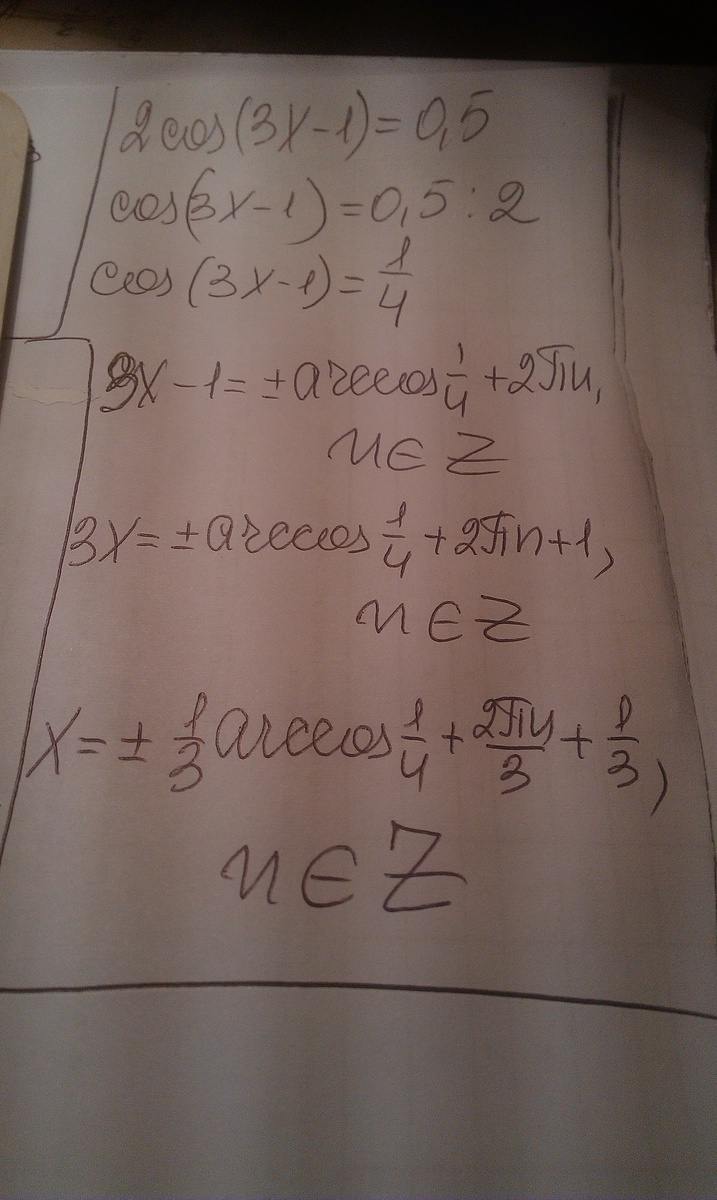 2cos(3x-1)=0,5
cos(3x-1)=0,5:2
cos(3x-1)=1/4
3x-1=±arccos 1/4+2πn,
n∈Z
3x=±arccos 1/4+2πn+1,
n∈Z
x=± 1/3 arccos 1/4+ 2πn/3 + 1/3,
n∈Z